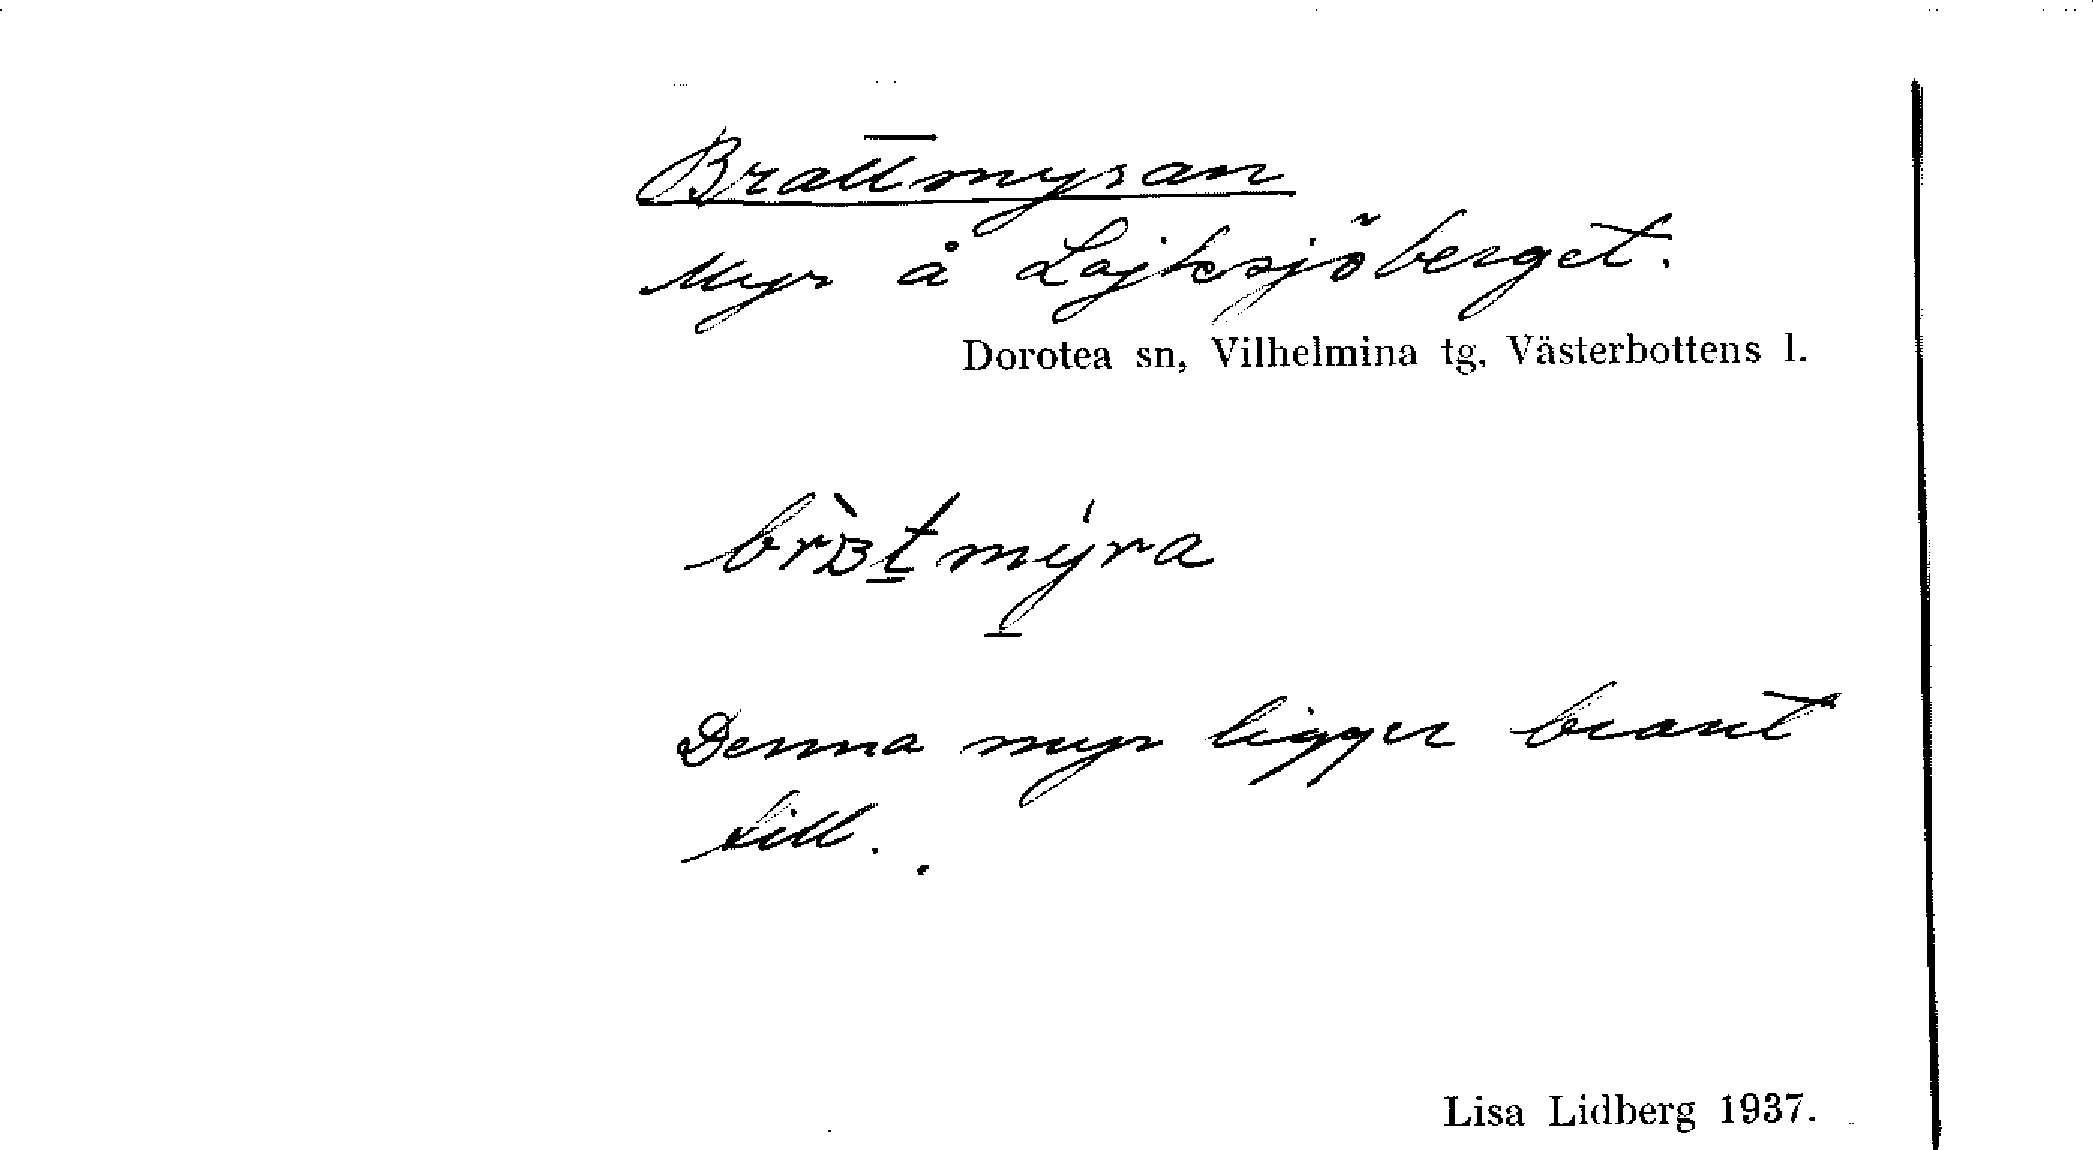 Brattmyran
Myr å Lajksjöberget.
Dorotea sn, Vilhelmina tg, Västerbottens l.
Denna myr ligger brant
till.
Lisa Lidberg 1937.